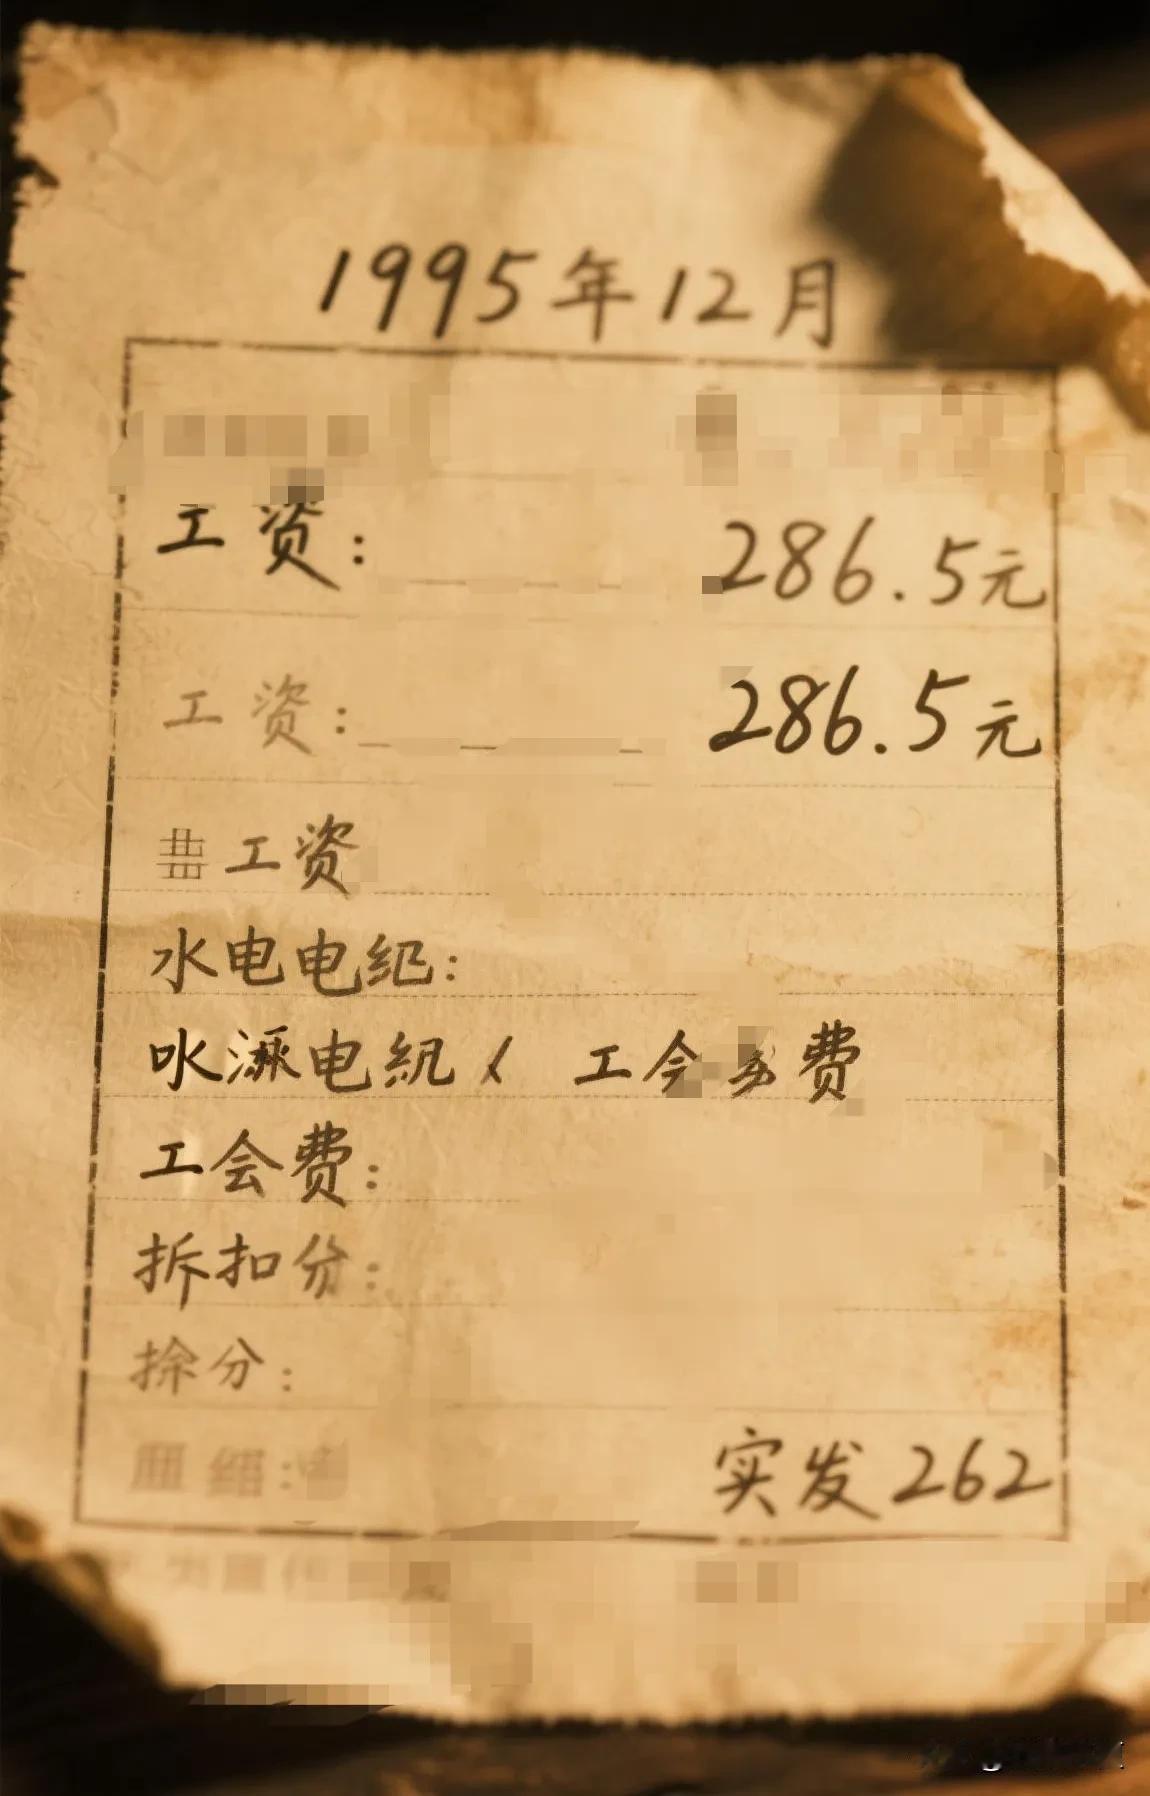 1995年12月
工资: 286.5元
工资: 286.5元
工资
水电电纪:
电 工会 费
工会费:
拆扣分:
分:
实发262